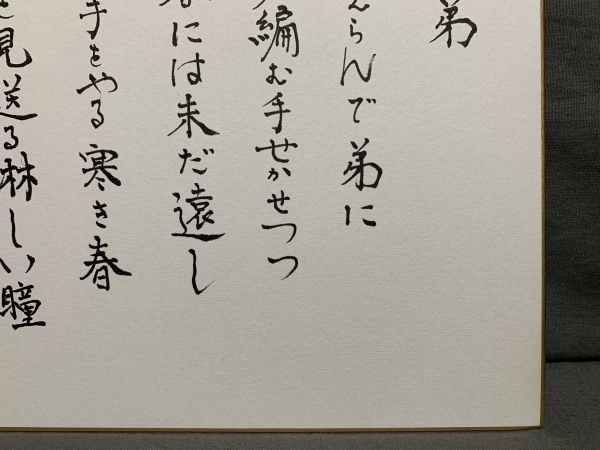 弟
らんで弟に
編む手せかせつつ
には未だ遠し
手をやる寒き春
見送る淋しい瞳